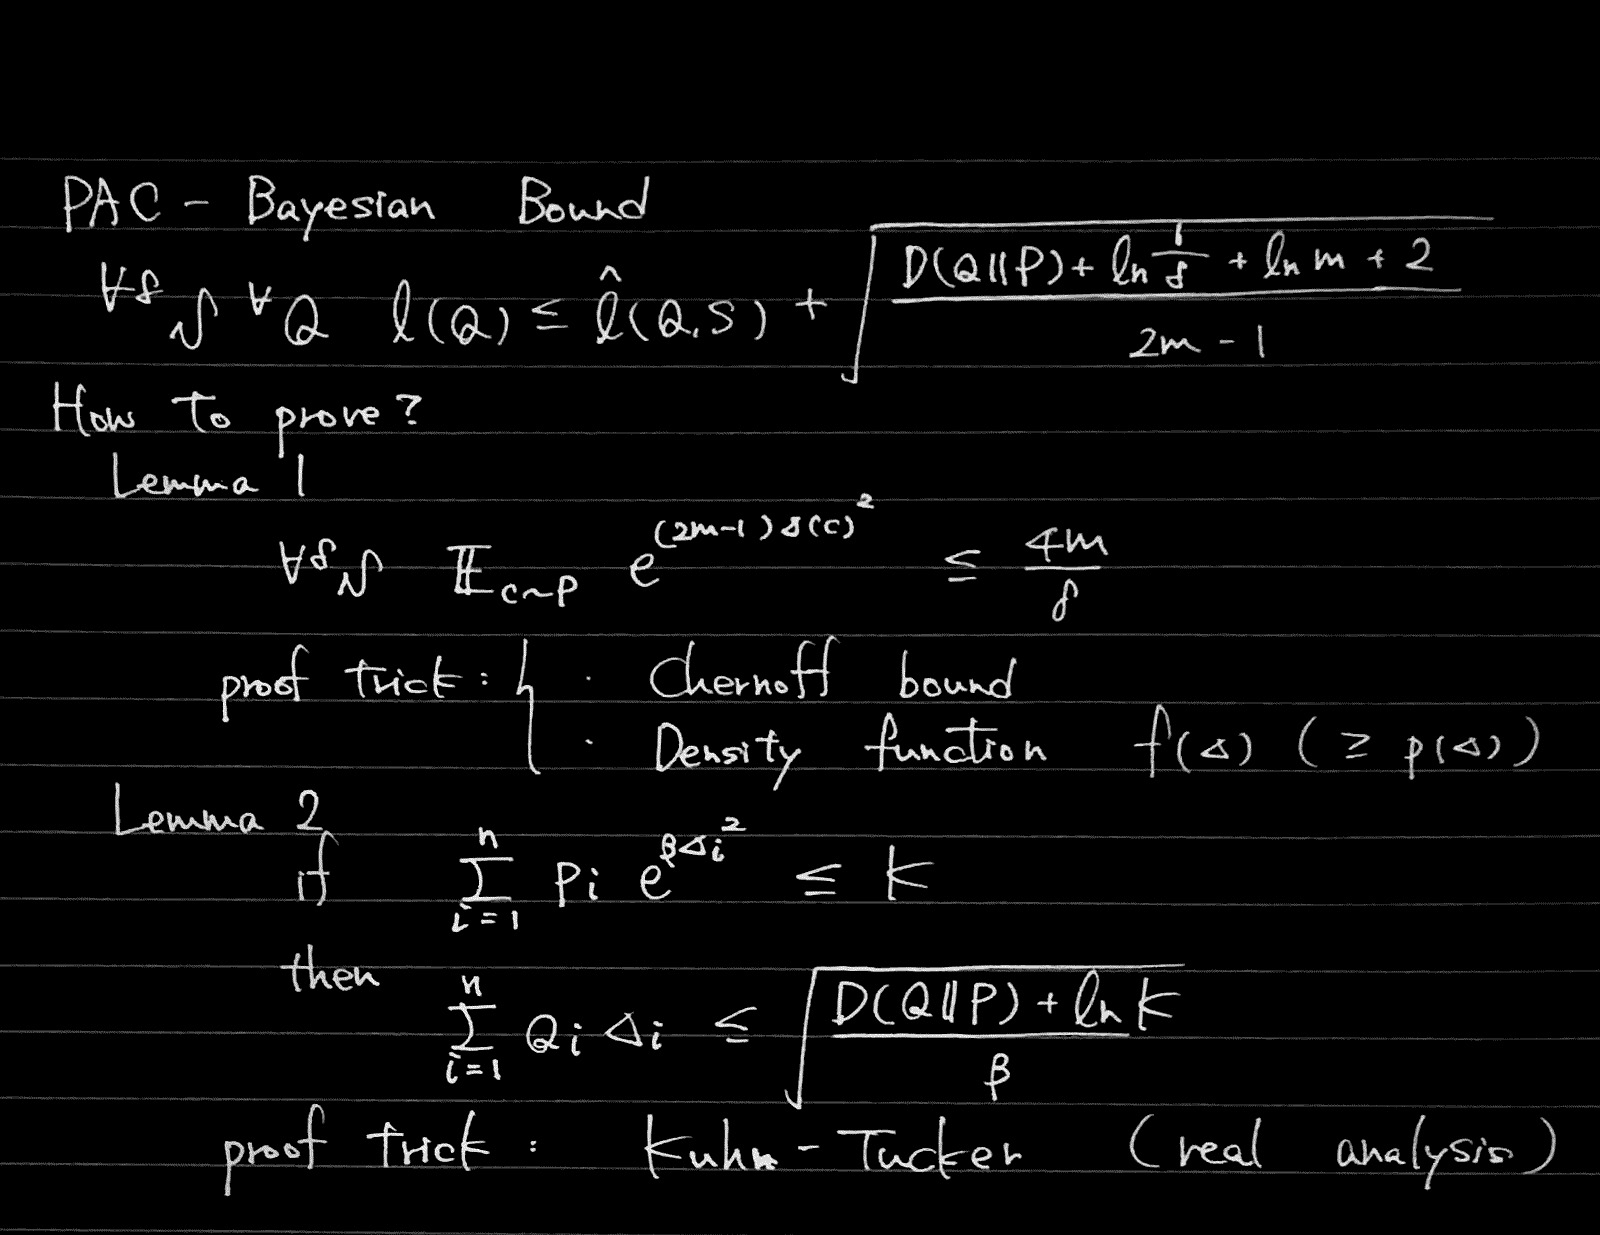 PAC - Bayesian Bound
∀δ S ∀Q l(Q) ≤ l̂(Q,S) + √((D(Q||P) + ln 1/δ + ln m + 2)/(2m - 1))
How to prove?
Lemma 1
∀δ S 𝔼_{c~P} e^{(2m-1)δ(c)²} ≤ 4m/δ
proof trick: { · Chernoff bound
· Density function f(Δ) (≥ p(Δ))
Lemma 2
if Σ_{i=1}^{n} Pi e^{βΔi²} ≤ K
then Σ_{i=1}^{n} Qi Δi ≤ √((D(Q||P) + ln K)/β)
proof trick: Kuhn-Tucker (real analysis)